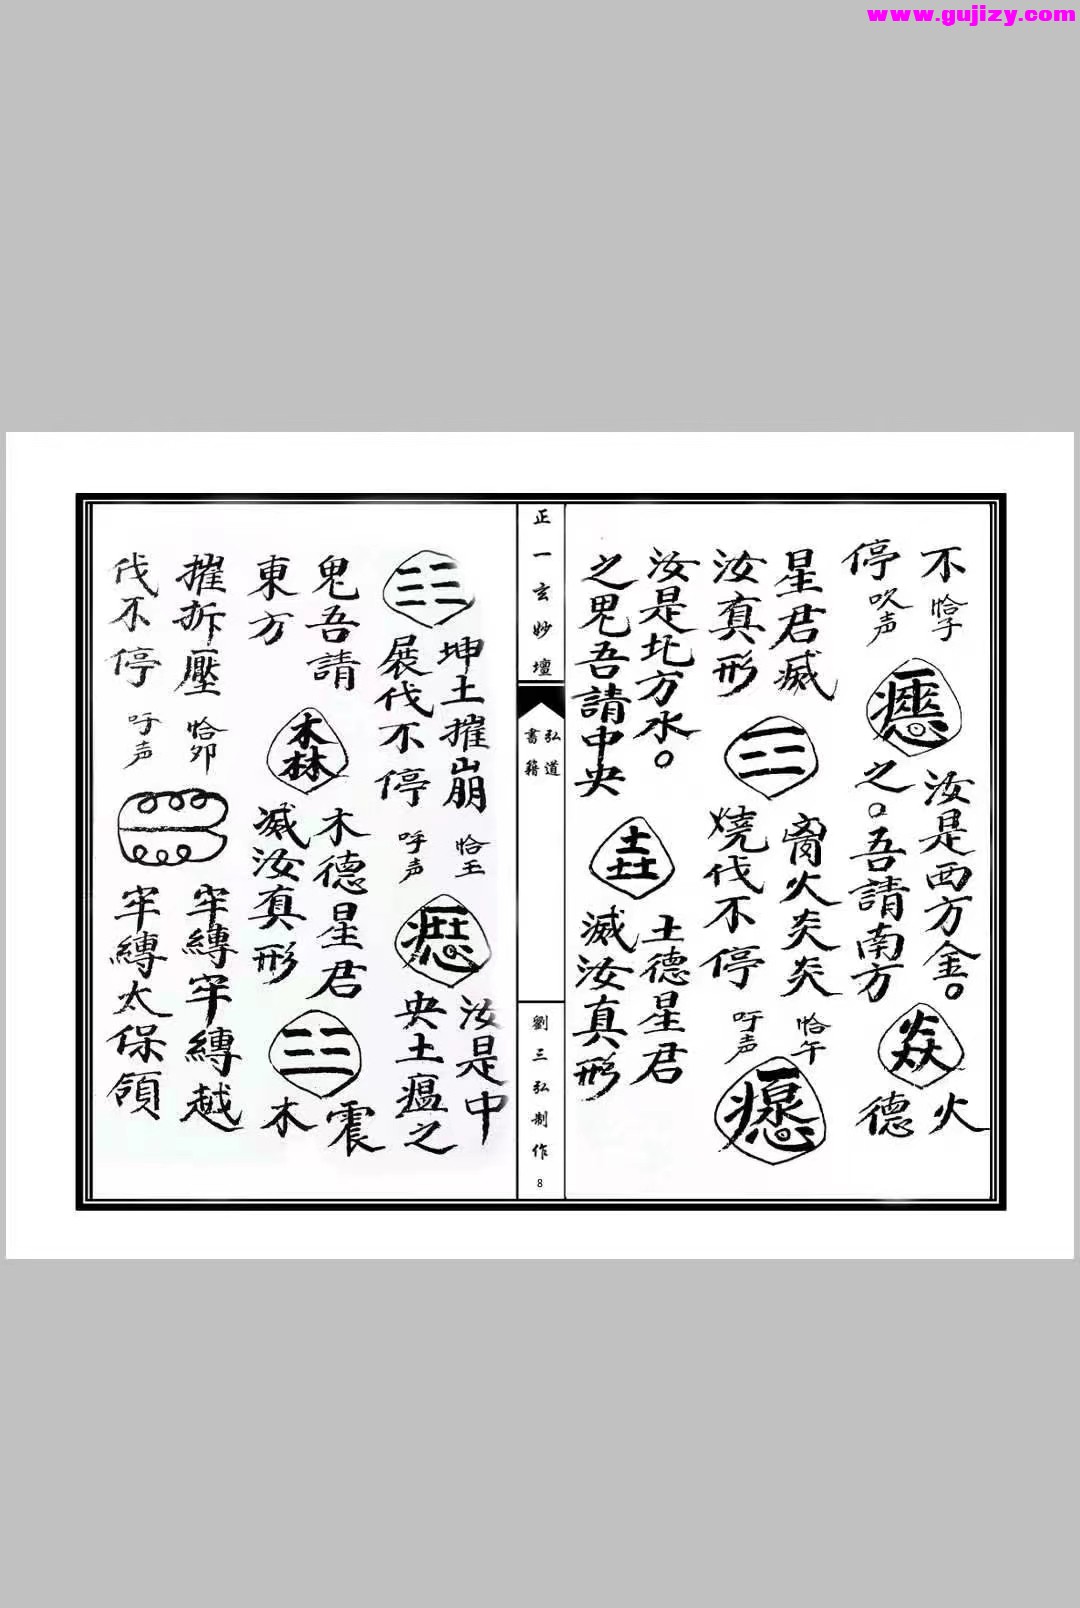 www.gujizy.com
不恰子
停吹声
汝是西方金。
之。吾請南方
火
德
星君滅
汝真形
离火炎炎恰午
燒伐不停吁声
汝是北方水。
之鬼吾請中央
土德星君
滅汝真形
正一玄妙壇
弘道
書籍
劉三弘制作
8
坤土摧崩恰玉
展伐不停呼声
汝是中
央土瘟之
鬼吾請
東方
木德星君
滅汝真形
震
木
摧拆壓恰夘
伐不停吁声
牢縛牢縛越
牢縛太保領